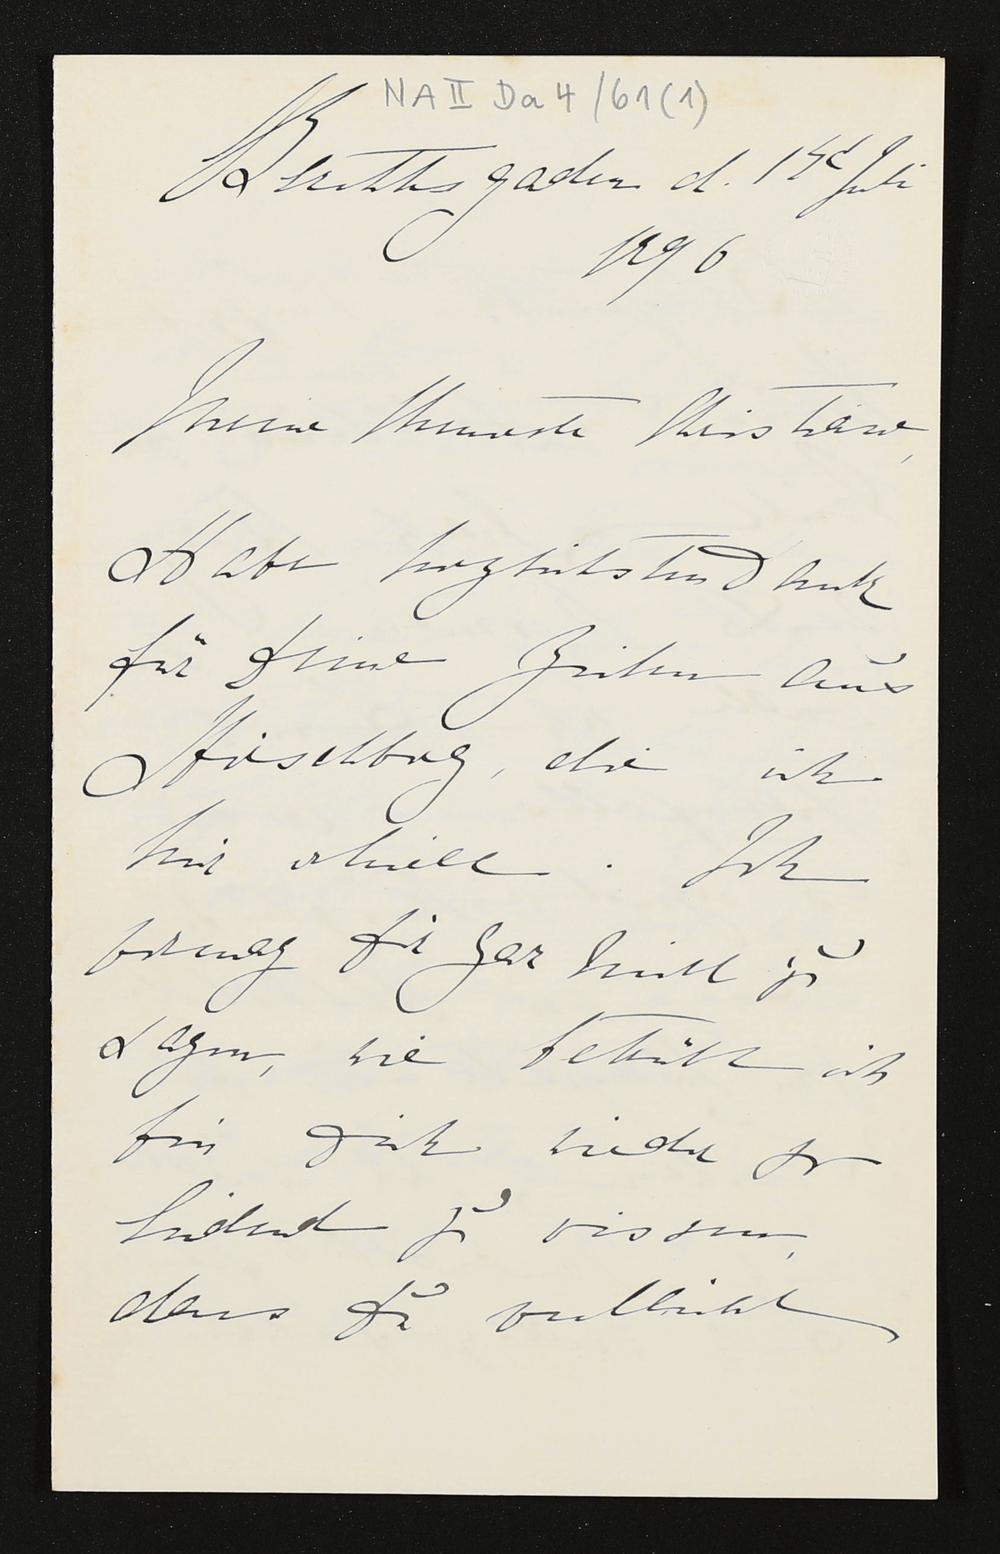 NA II Da 4 /61 (1)
Berchtesgaden d. 14t Juli
1896
Meine theuerste Christiane,
Habe herzlichsten Dank
für Deine Zeilen aus
, die ich
hier erhielt. Ich
vermag Dir gar nicht zu
sagen, wie betrübt ich
bin Dich wieder so
leidend zu wissen,
dass Du vielleicht